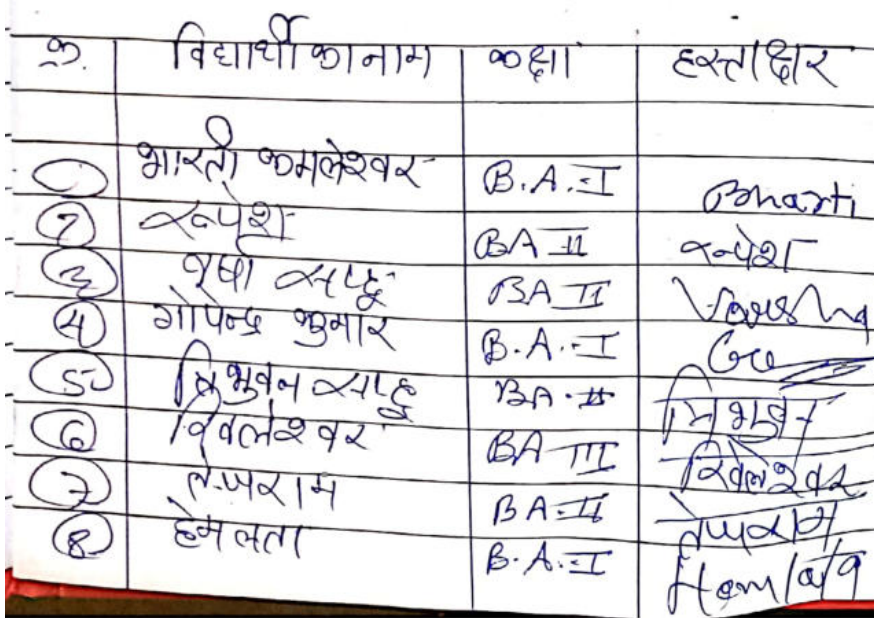 क्र. विद्यार्थी का नाम कक्षा हस्ताक्षर
1 भारती कमलेश्वर B.A.-I Bharti
2 रूपेश BA II रूपेश
3 वर्षा साहू BA II Varsha
4 गोपेन्द्र कुमार B.A.-I
5 त्रिभुवन साहू BA-II त्रिभुवन
6 खिलेश्वर BA III खिलेश्वर
7 लेखराम BA-II लेखराम
8 हेमलता B.A.-I Hemlata